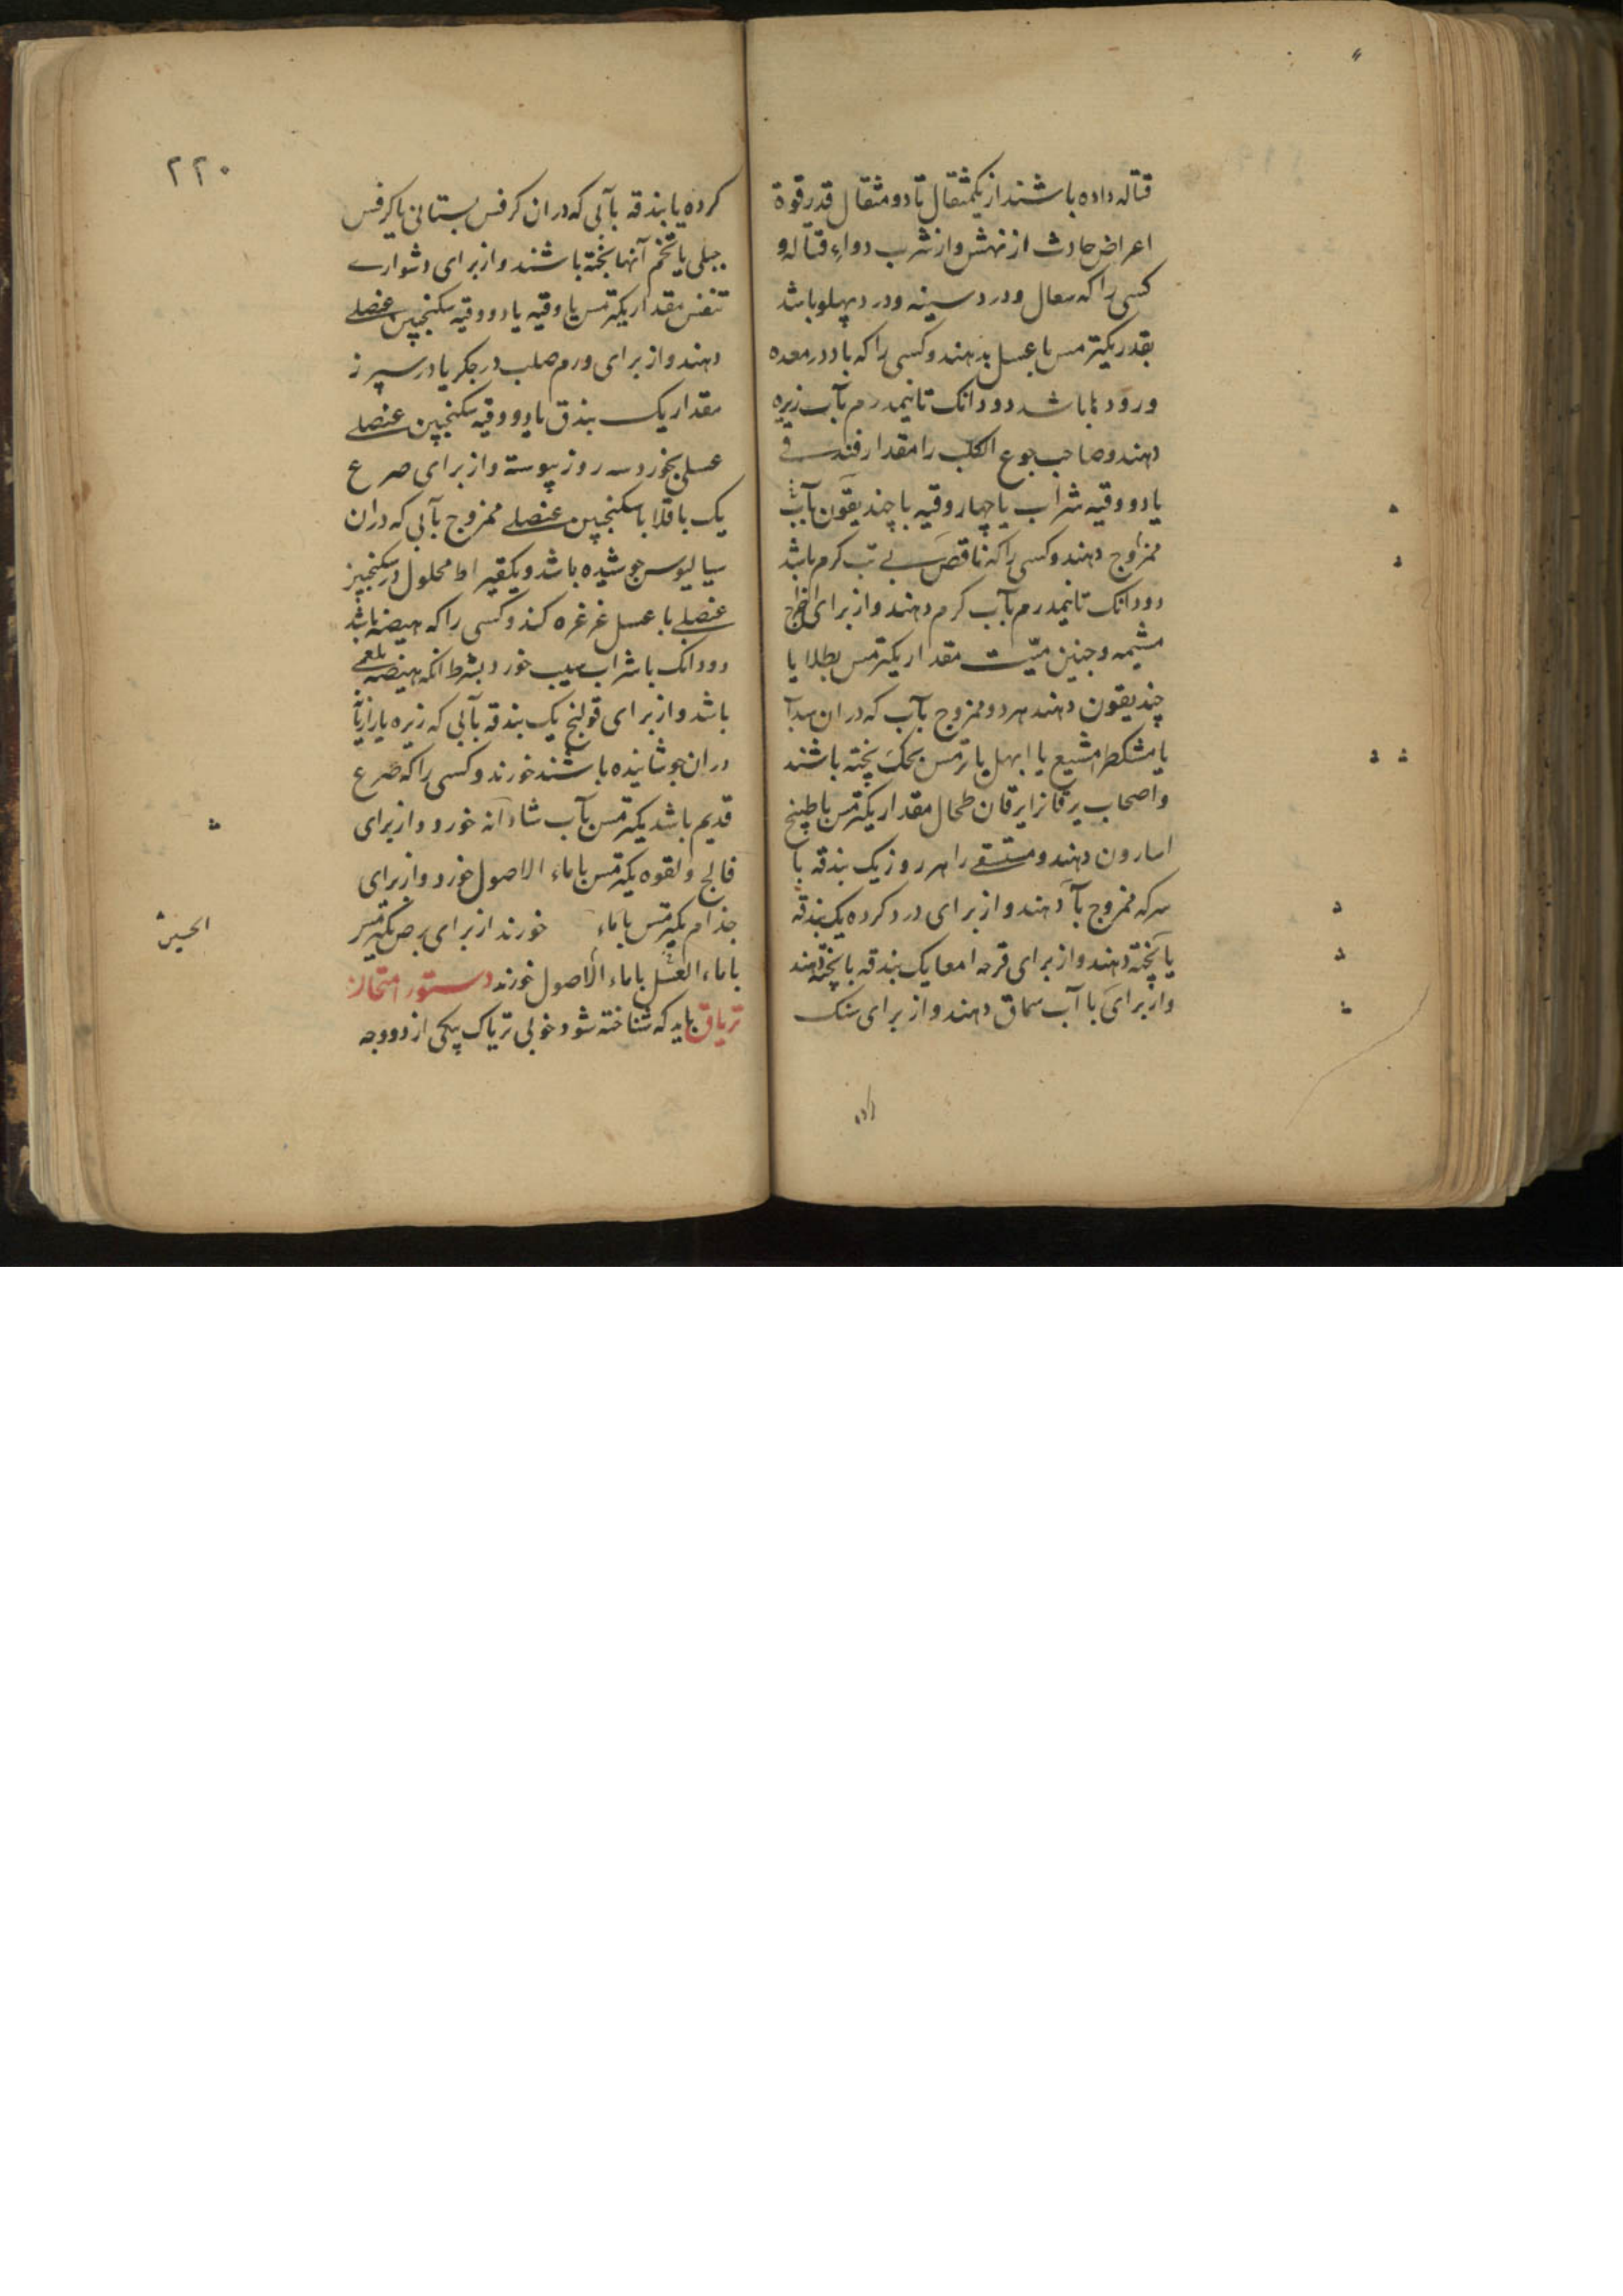 قتاله داده باشند از یکمثقال تا دو مثقال قدر قوة
اعراض حادث از نهش و از شرب دواء قتاله و
کسی را که سعال و درد سینه و درد پهلو باشد
بقدر یکترمس با عسل بدهند و کسی را که باد در معده
و رودها باشد دودانک تا نیمدرم بآب زیره
دهند و صاحب جوع الکلب را مقدار فندقی
یا دو وقیه شراب یا چهار وقیه با چندیقون بآب
ممزوج دهند و کسی را که ناقص بی تب کرم باشد
دودانک تا نیمدرم بآب کرم دهند و از برای اخراج
مشیمه و جنین میّت مقدار یکترمس بطلا یا
چندیقون دهند هر دو ممزوج بآب که در ان سداب
یا مشکطرامشیع یا ابهل یا ترمس پخته باشند
و اصحاب یرقانرا یرقان طحال مقدار یکترمس با طبیخ
اسارون دهند و مستسقی را هر روز یک بندقه با
سرکه ممزوج بآ دهند و از برای درد کرده یک بندقه
یا پخته دهند و از برای قرحه امعا یک بندقه با پخته دهند
و از برای با آب سماق دهند و از برای سنک
۲۲۰
کرده یا بندقه بآبی که در ان کرفس بستانی یا کرفس
جبلی یا تخم آنها پخته باشند و از برای دشواری
تنفس مقدار یکترمس یا وقیه یا دو وقیه سکنجبین عنصلی
دهند و از برای ورم صلب در جکر یا در سپرز
مقدار یک بندق با دو وقیه سکنجبین عنصلی
عسلی بخورد سه روز پیوسته و از برای صرع
یک باقلا با سکنجبین عنصلی ممزوج بآبی که در ان
سیالیوس جوشیده باشد و یکقیراط محلول در سکنجبین
عنصلی با عسل غرغره کند و کسی را که هیضه باشد
دودانک با شراب سیب خورد بشرط انکه هیضه بلغمی
باشد و از برای قولنج یک بندقه بآبی که زیره یا رازیانه
در ان جوشانیده باشند خورند و کسی را که صرع
قدیم باشد یکترمس بآب شادانه خورد و از برای
فالج و لقوه یکترمس با ماء الاصول خورد و از برای
جذام یکترمس با ماء خورند از برای برص یکترمس
با ماء العسل با ماء الاصول خورند دستور امتحان
تریاق باید که شناخته شود خوبی تریاک بیکی از دو وجه